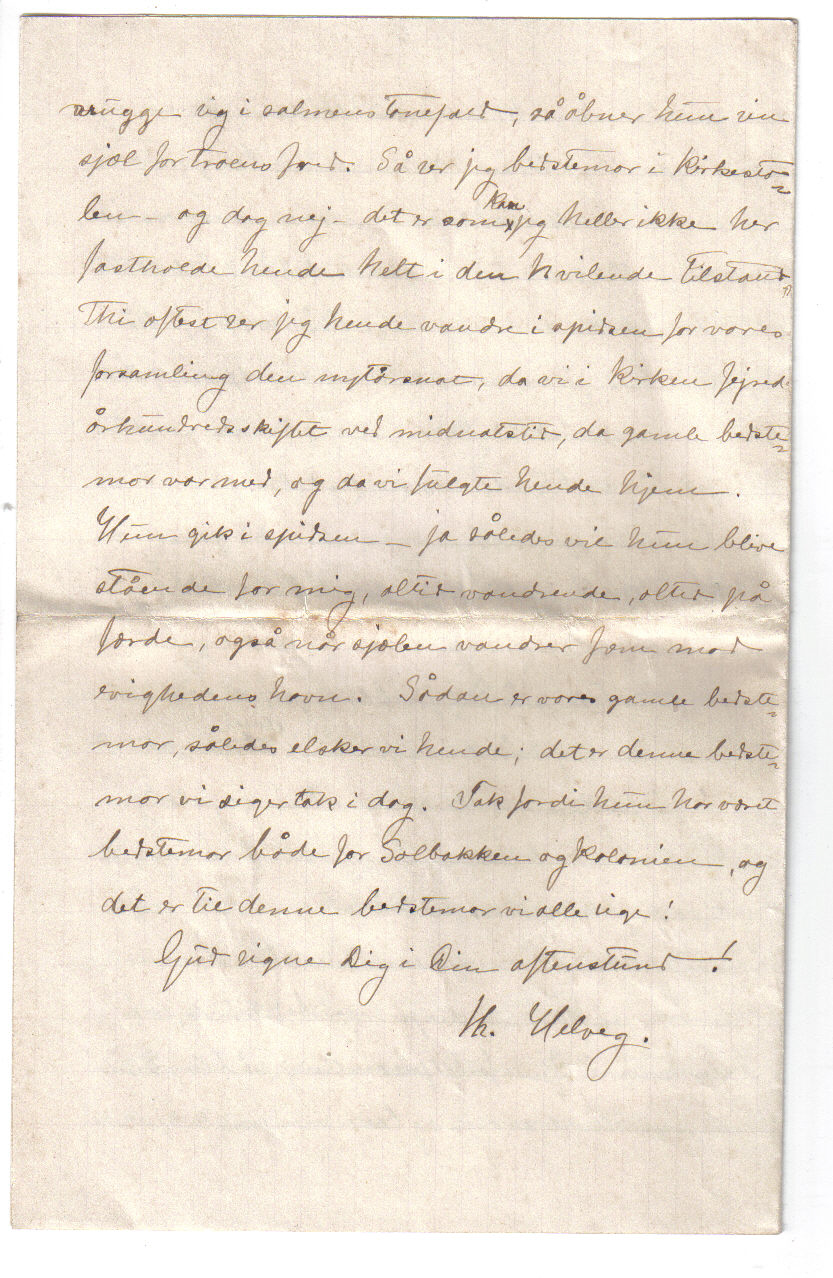 vugge sig i salmens tonefald, så åbner hun sin
sjæl for troens fred. Så ser jeg bedstemor i kirkesto=
len – og dog nej – det er som kan jeg heller ikke her
fastholde hende helt i den hvilende tilstand
Thi oftest ser jeg hende vandre i spidsen for vores
forsamling den nytårsnat, da vi i kirken fejred
århundredsskiftet ved midnatstid, da gamle bedste=
mor var med, og da vi fulgte hende hjem.
Hun gik i spidsen – ja således vil hun blive
stående for mig, altid vandrende, altid på
færde, også når sjælen vandrer frem mod
evighedens havn. Sådan er vores gamle bedste=
mor, således elsker vi hende; det er denne bedste=
mor vi siger tak i dag. Tak fordi hun har været
bedstemor både for Solbakken og kolonien, og
det er til denne bedstemor vi alle sige!
Gud signe Dig i Din aftenstund!
Th. Helveg.